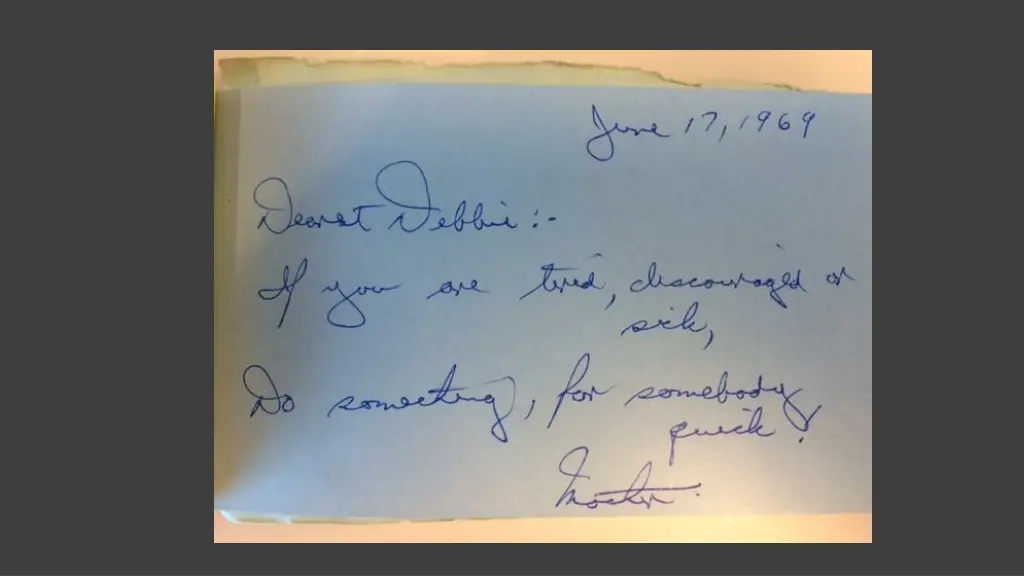 June 17, 1969
Dearest Debbie:-
If you are tired, discouraged or
sick,
Do something, for somebody
quick!
Mother.